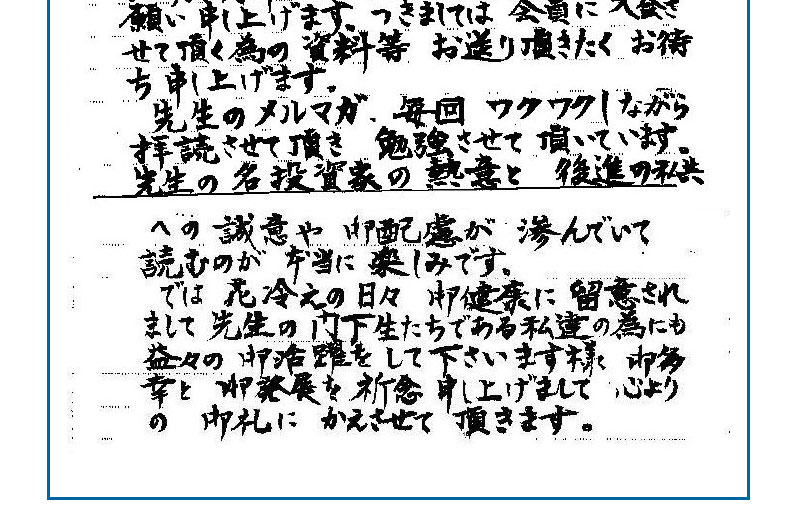 願い申し上げます。つきましては 会員に 入会さ
せて頂く為の 資料等 お送り頂きたく お待
ち申し上げます。
先生の メルマガ、毎回 ワクワクしながら
拝読させて頂き 勉強させて 頂いています。
先生の 名投資家の 熱意と 後進の私共
への 誠意や 御配慮が 滲んでいて
読むのが 本当に 楽しみです。
では 花冷えの日々 御健康に 留意され
まして 先生の 門下生たちである私達の為にも
益々の 御活躍を して下さいます様 御多
幸と 御発展を 祈念 申し上げまして 心より
の 御礼に かえさせて 頂きます。